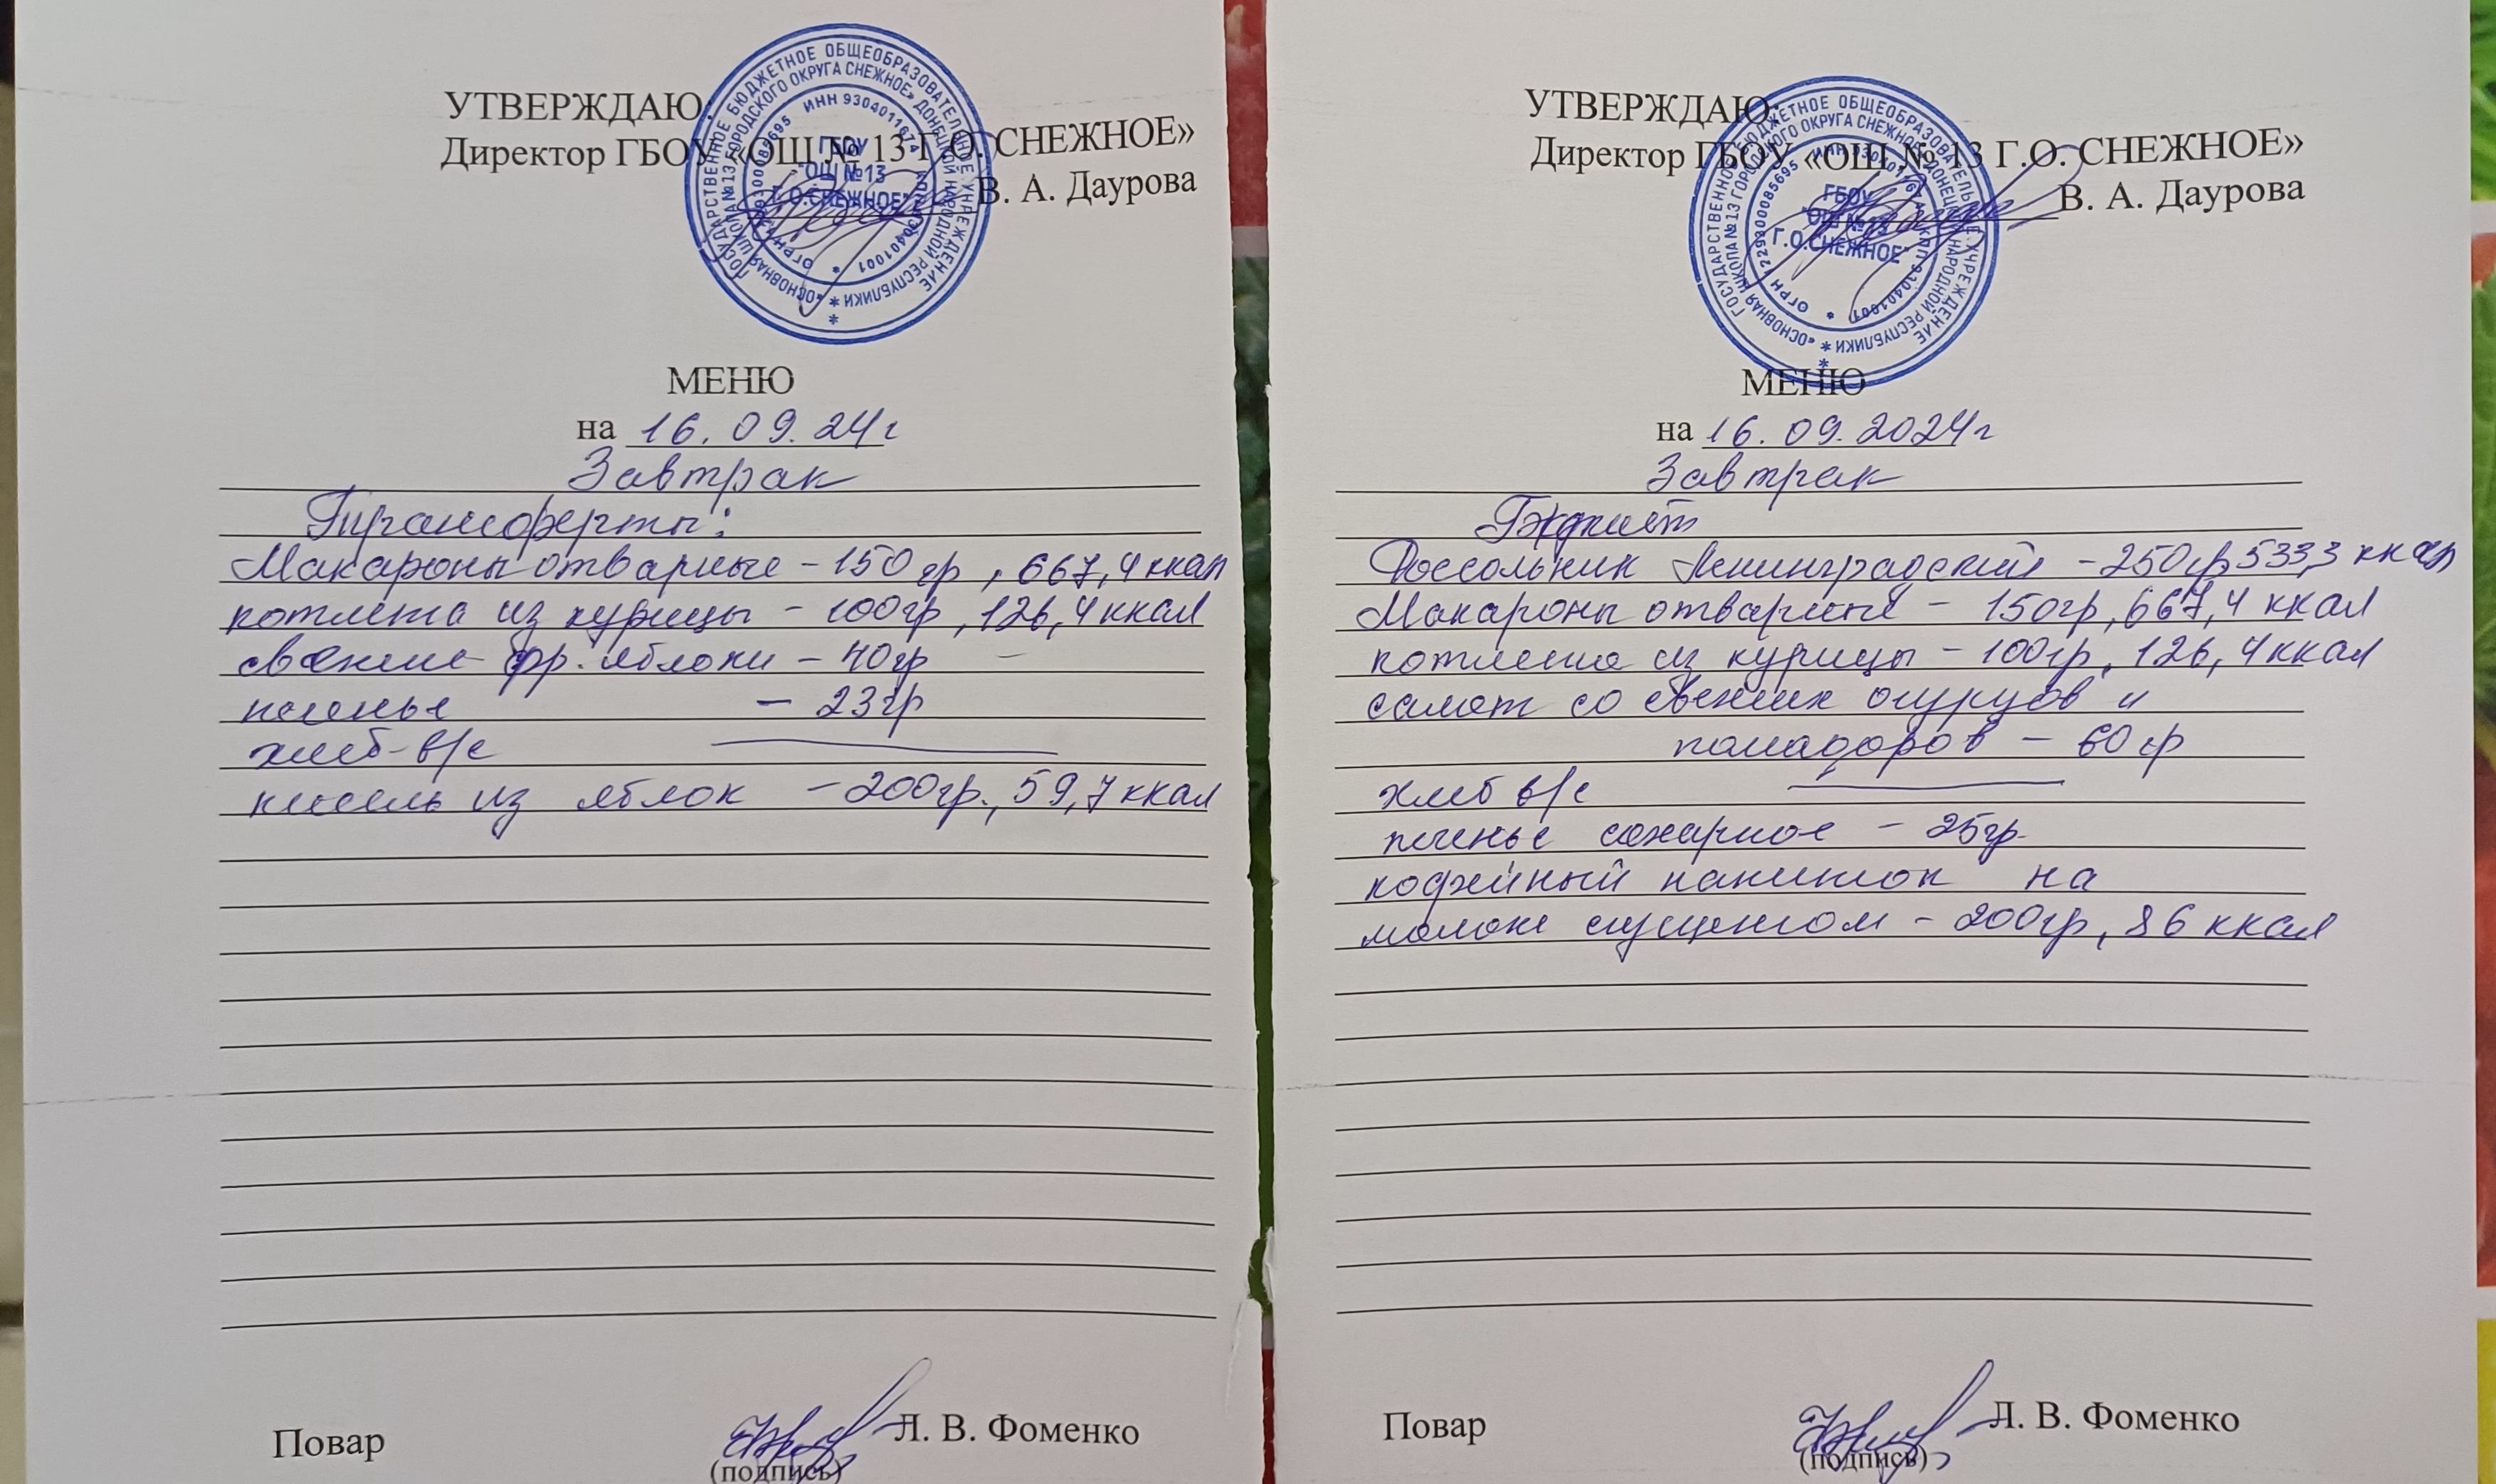 УТВЕРЖДАЮ:
Директор ГБОУ «ОШ № 13 Г.О. СНЕЖНОЕ»
В. А. Даурова
ГОСУДАРСТВЕННОЕ БЮДЖЕТНОЕ ОБЩЕОБРАЗОВАТЕЛЬНОЕ УЧРЕЖДЕНИЕ
«ОСНОВНАЯ ШКОЛА №13 ГОРОДСКОГО ОКРУГА СНЕЖНОЕ» ДОНЕЦКОЙ НАРОДНОЙ РЕСПУБЛИКИ
ИНН 9304011674
ГБОУ
"ОШ №13
Г.О.СНЕЖНОЕ"
МЕНЮ
на 16.09.24г
Завтрак
Трансферты:
Макароны отварные - 150 гр, 667,4 ккал
котлета из курицы - 100гр, 126,4 ккал
свежие фр. яблоки - 40гр -
печенье - 23гр
хлеб - в/с
кисель из яблок - 200гр., 59,7 ккал
Повар
Л. В. Фоменко
(подпись)
УТВЕРЖДАЮ:
Директор ГБОУ «ОШ № 13 Г.О. СНЕЖНОЕ»
В. А. Даурова
ГОСУДАРСТВЕННОЕ БЮДЖЕТНОЕ ОБЩЕОБРАЗОВАТЕЛЬНОЕ УЧРЕЖДЕНИЕ
«ОСНОВНАЯ ШКОЛА №13 ГОРОДСКОГО ОКРУГА СНЕЖНОЕ» ДОНЕЦКОЙ НАРОДНОЙ РЕСПУБЛИКИ
ОГРН 1229300085695 КПП 930401001
ГБОУ
"ОШ №13
Г.О.СНЕЖНОЕ"
МЕНЮ
на 16.09.2024г
Завтрак
Бюджет
Рассольник Ленинградский - 250гр, 533,3 ккал
Макароны отварные - 150гр, 667,4 ккал
котлета из курицы - 100гр, 126,4 ккал
салат со свежих огурцов и
помадоров - 60 гр
хлеб в/с
печенье сахарное - 25гр.
кофейный напиток на
молоке сгущеном - 200гр, 86 ккал
Повар
Л. В. Фоменко
(подпись)